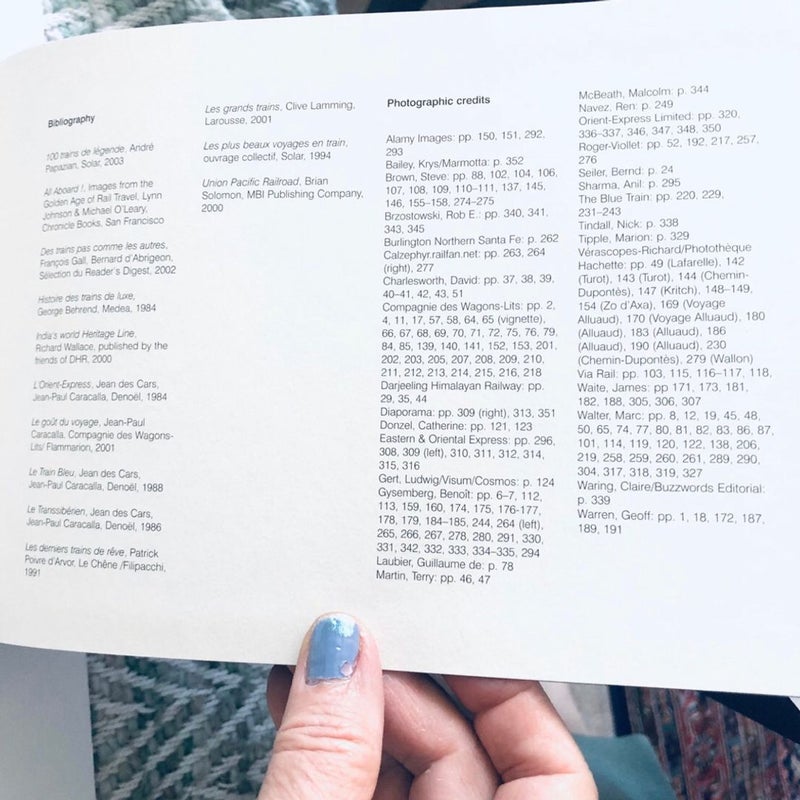 Bibliography
100 trains de légende, André
Papazian, Solar, 2003
All Aboard !, Images from the
Golden Age of Rail Travel, Lynn
Johnson & Michael O'Leary,
Chronicle Books, San Francisco
Des trains pas comme les autres,
François Gall, Bernard d'Abrigeon,
Sélection du Reader's Digest, 2002
Histoire des trains de luxe,
George Behrend, Medea, 1984
India's world Heritage Line,
Richard Wallace, published by the
friends of DHR, 2000
L'Orient-Express, Jean des Cars,
Jean-Paul Caracalla, Denoël, 1984
Le goût du voyage, Jean-Paul
Caracalla, Compagnie des Wagons-
Lits/ Flammarion, 2001
Le Train Bleu, Jean des Cars,
Jean-Paul Caracalla, Denoël, 1988
Le Transsibérien, Jean des Cars,
Jean-Paul Caracalla, Denoël, 1986
Les derniers trains de rêve, Patrick
Poivre d'Arvor, Le Chêne /Filipacchi,
1991
Les grands trains, Clive Lamming,
Larousse, 2001
Les plus beaux voyages en train,
ouvrage collectif, Solar, 1994
Union Pacific Railroad, Brian
Solomon, MBI Publishing Company,
2000
Photographic credits
Alamy Images: pp. 150, 151, 292,
293
Bailey, Krys/Marmotta: p. 352
Brown, Steve: pp. 88, 102, 104, 106,
107, 108, 109, 110–111, 137, 145,
146, 155–158, 274–275
Brzostowski, Rob E.: pp. 340, 341,
343, 345
Burlington Northern Santa Fe: p. 262
Calzephyr.railfan.net: pp. 263, 264
(right), 277
Charlesworth, David: pp. 37, 38, 39,
40–41, 42, 43, 51
Compagnie des Wagons-Lits: pp. 2,
4, 11, 17, 57, 58, 64, 65 (vignette),
66, 67, 68, 69, 70, 71, 72, 75, 76, 79,
84, 85, 139, 140, 141, 152, 153, 201,
202, 203, 205, 207, 208, 209, 210,
211, 212, 213, 214, 215, 216, 218
Darjeeling Himalayan Railway: pp.
29, 35, 44
Diaporama: pp. 309 (right), 313, 351
Donzel, Catherine: pp. 121, 123
Eastern & Oriental Express: pp. 296,
308, 309 (left), 310, 311, 312, 314,
315, 316
Gert, Ludwig/Visum/Cosmos: p. 124
Gysemberg, Benoît: pp. 6–7, 112,
113, 159, 160, 174, 175, 176-177,
178, 179, 184–185, 244, 264 (left),
265, 266, 267, 278, 280, 291, 330,
331, 342, 332, 333, 334–335, 294
Laubier, Guillaume de: p. 78
Martin, Terry: pp. 46, 47
McBeath, Malcolm: p. 344
Navez, Ren: p. 249
Orient-Express Limited: pp. 320,
336–337, 346, 347, 348, 350
Roger-Viollet: pp. 52, 192, 217, 257,
276
Seiler, Bernd: p. 24
Sharma, Anil: p. 295
The Blue Train: pp. 220, 229,
231–243
Tindall, Nick: p. 338
Tipple, Marion: p. 329
Vérascopes-Richard/Photothèque
Hachette: pp. 49 (Lafarelle), 142
(Turot), 143 (Turot), 144 (Chemin-
Dupontès), 147 (Kritch), 148–149,
154 (Zo d'Axa), 169 (Voyage
Alluaud), 170 (Voyage Alluaud), 180
(Alluaud), 183 (Alluaud), 186
(Alluaud), 190 (Alluaud), 230
(Chemin-Dupontès), 279 (Wallon)
Via Rail: pp. 103, 115, 116–117, 118,
Waite, James: pp 171, 173, 181,
182, 188, 305, 306, 307
Walter, Marc: pp. 8, 12, 19, 45, 48,
50, 65, 74, 77, 80, 81, 82, 83, 86, 87,
101, 114, 119, 120, 122, 138, 206,
219, 258, 259, 260, 261, 289, 290,
304, 317, 318, 319, 327
Waring, Claire/Buzzwords Editorial:
p. 339
Warren, Geoff: pp. 1, 18, 172, 187,
189, 191